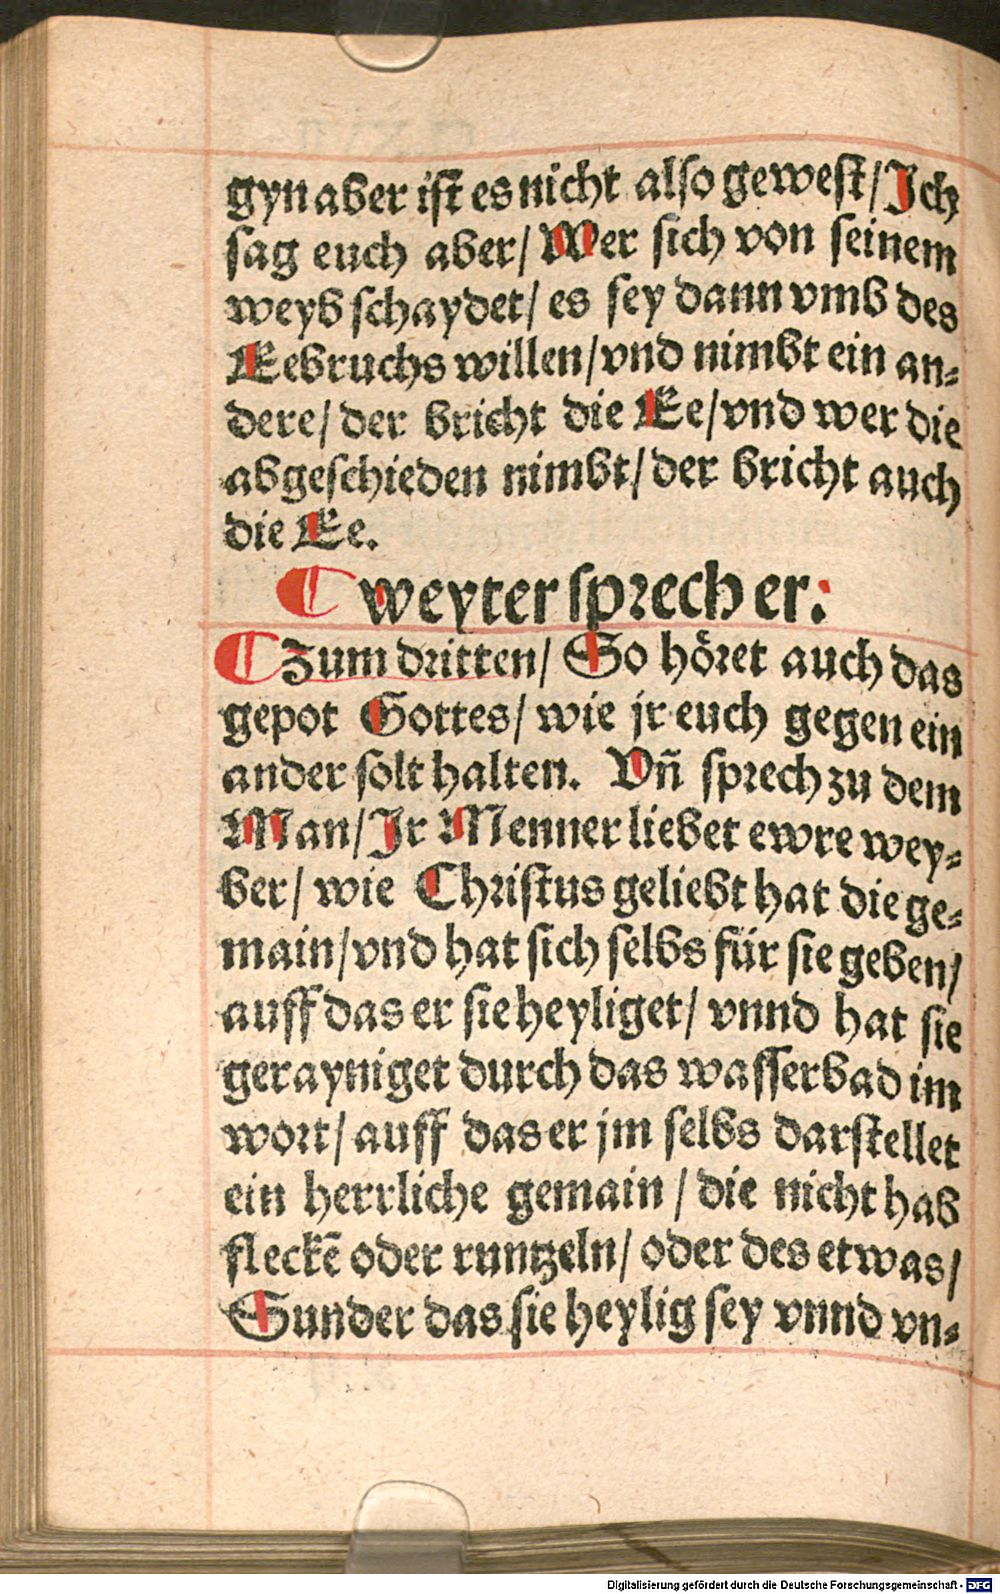 gyn aber iſt es nicht alſo geweſt/ Ich
ſag euch aber/ Wer ſich von ſeinem
weyb ſchaydet/ es ſey dann vmb des
Eebruchs willen/ vnd nimbt ein an⸗
dere/ der bricht die Ee/ vnd wer die
abgeſchieden nimbt/ der bricht auch
die Ee.
¶ weyter ſprech er:
¶ Zum dritten/ So höret auch das
gepot Gottes/ wie jr euch gegen ein
ander ſolt halten. Vñ ſprech zu dem
Man/ Jr Menner liebet ewre wey⸗
ber/ wie Chriſtus geliebt hat die ge⸗
main/ vnd hat ſich ſelbs für ſie geben/
auff das er ſie heyliget/ vnnd hat ſie
gerayniget durch das waſſerbad im
wort/ auff das er jm ſelbs darſtellet
ein herrliche gemain / die nicht hab
fleckē oder runtzeln/ oder des etwas/
Sunder das ſie heylig ſey vnnd vn⸗
Digitalisierung gefördert durch die Deutsche Forschungsgemeinschaft - DFG